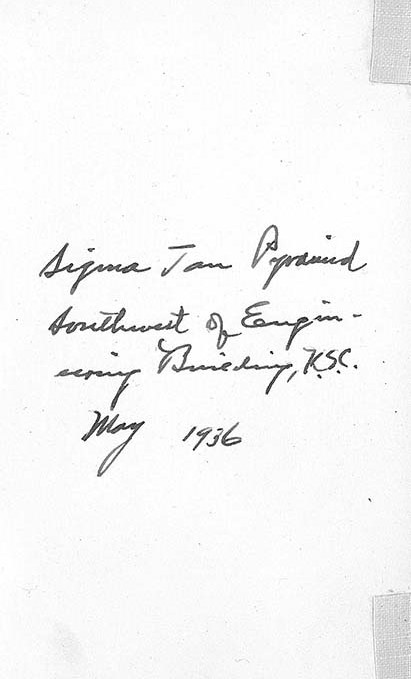 Sigma Tau Pyramid
Southwest of Engin-
eering Building, K.S.C.
May 1936